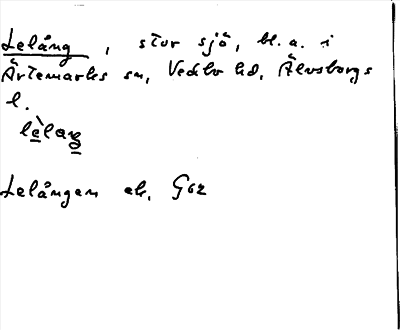 Lelång, stor sjö, bl. a. i
Ärtemarks sn, Vedbo hd, Älvsborgs
l.
Lelången ek. G62